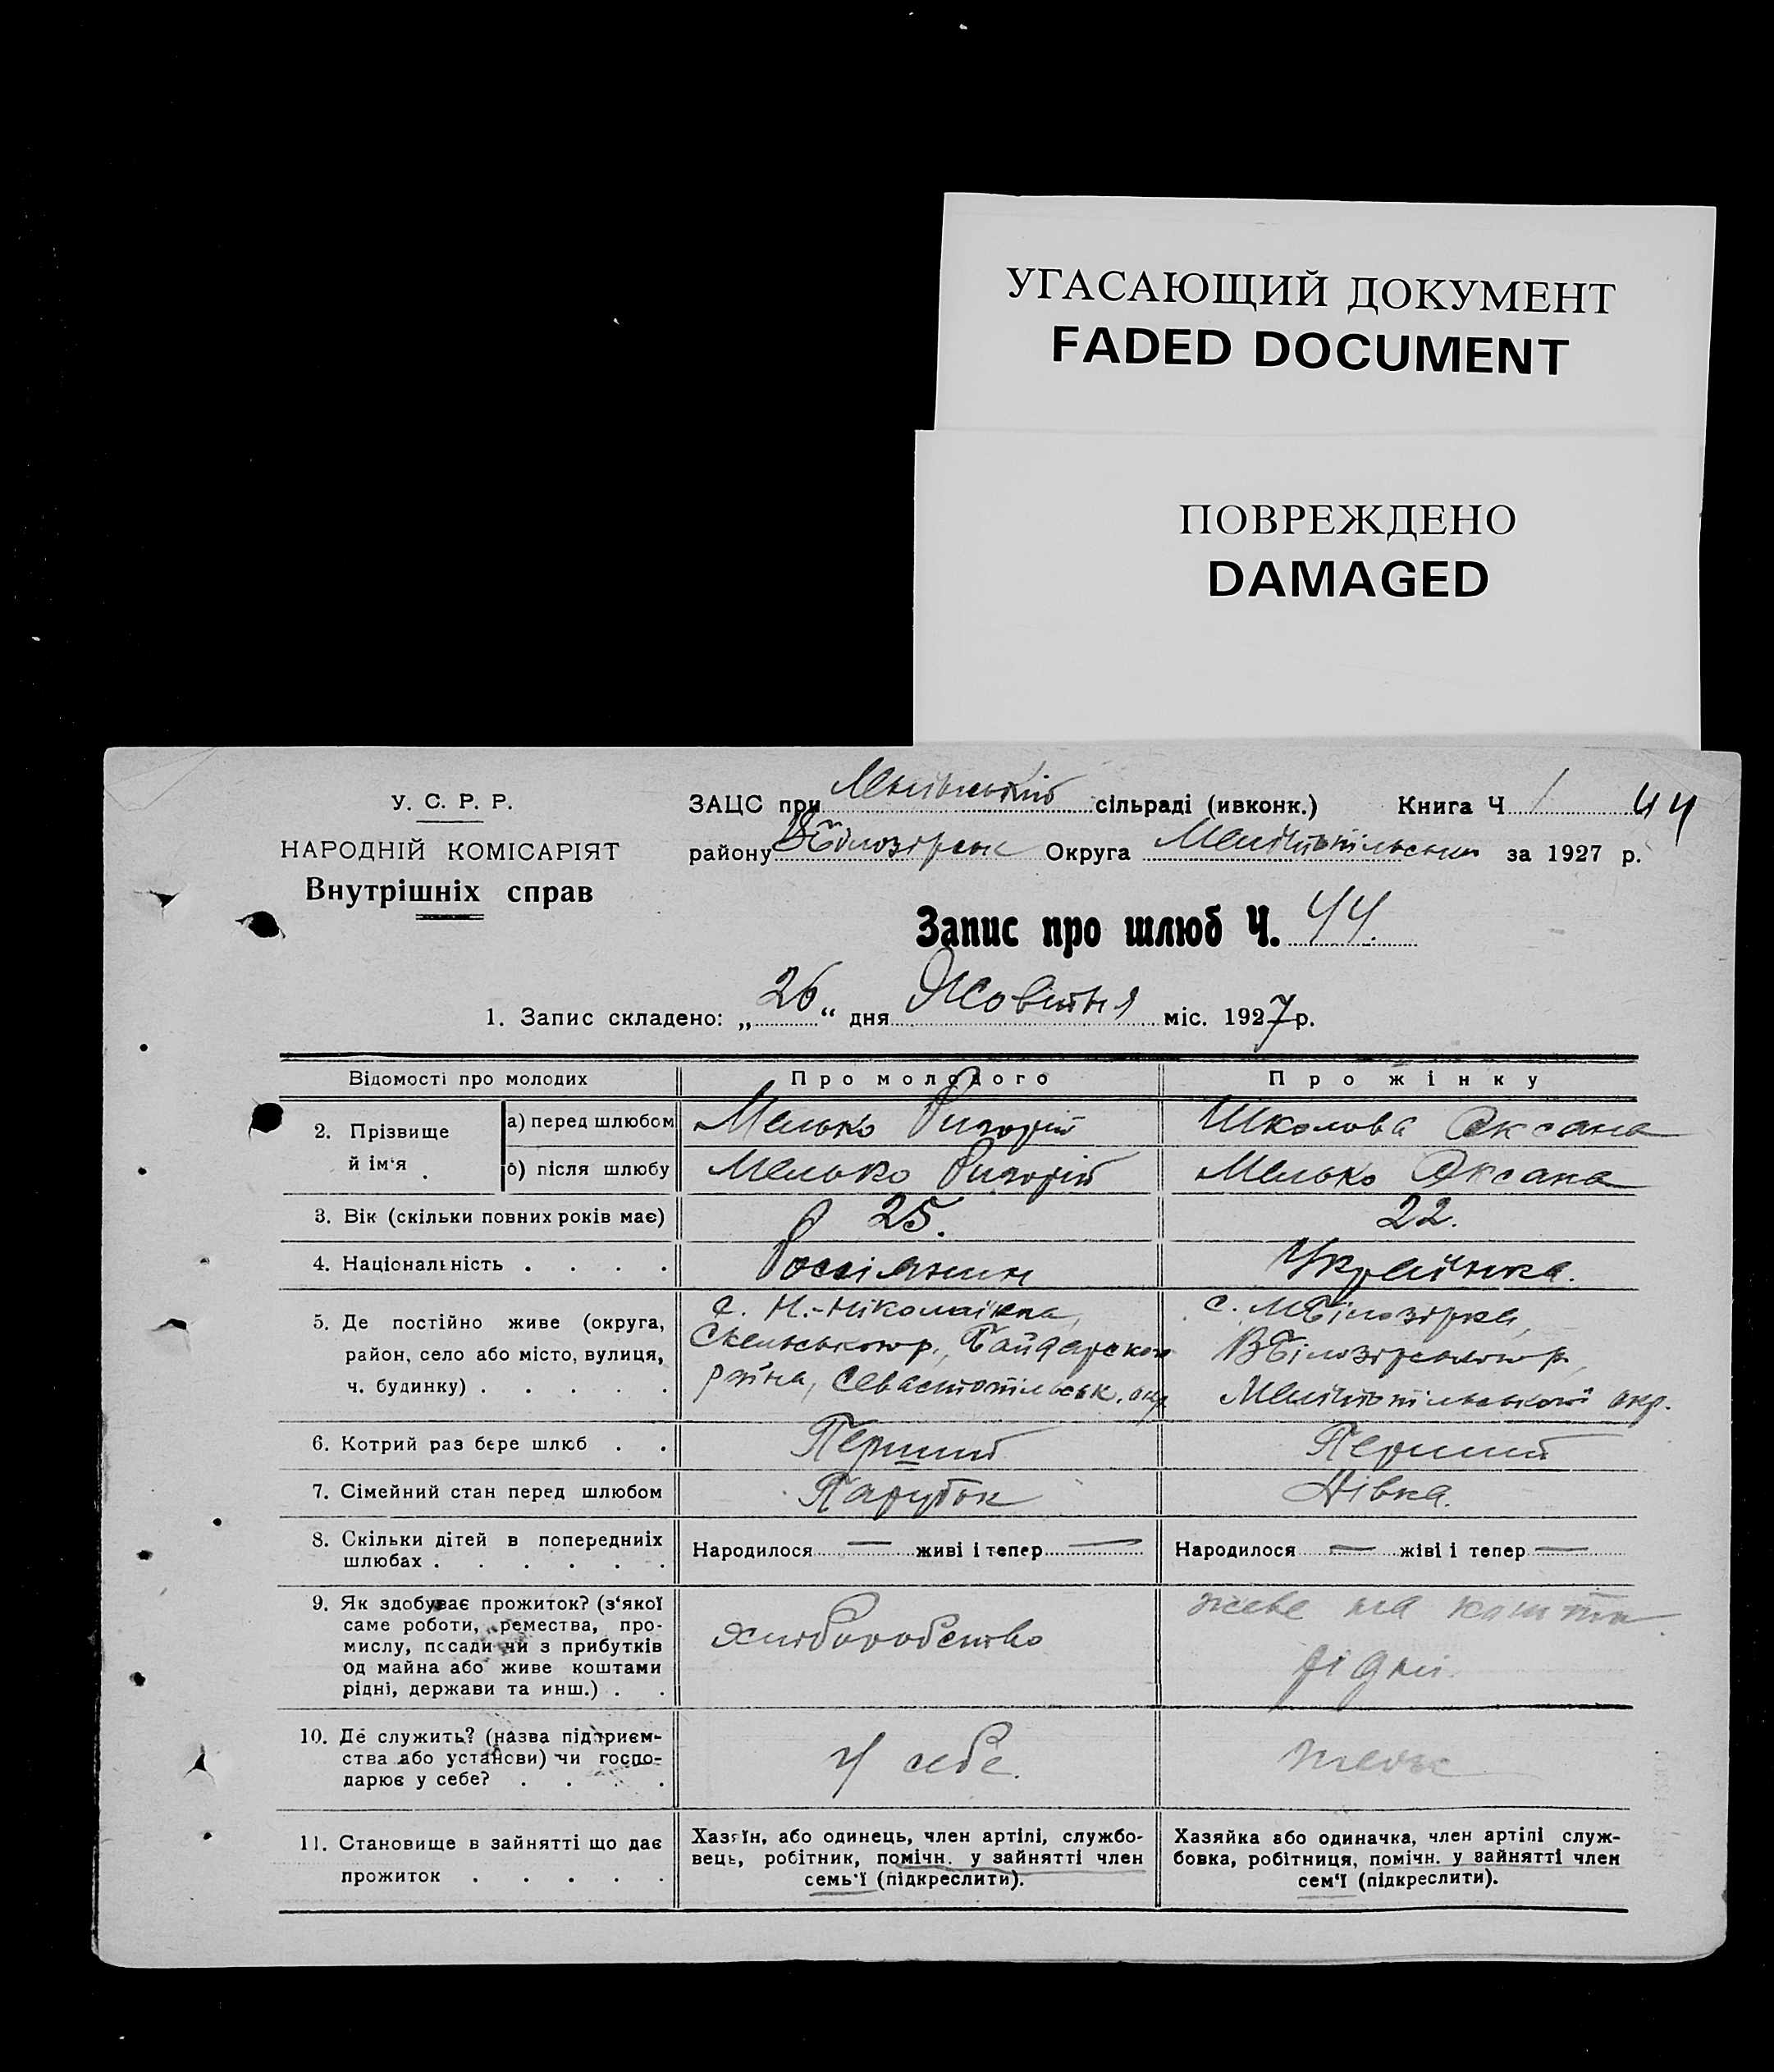 УГАСАЮЩИЙ ДОКУМЕНТ
FADED DOCUMENT
ПОВРЕЖДЕНО
DAMAGED
У. С. Р. Р.
НАРОДНІЙ КОМІСАРІЯТ
Внутрішніх справ
ЗАЦС при сільраді (ивконк.) Книга Ч 1 44
району В Білозірськ Округа Мелітопільськ за 1927 р.
Запис про шлюб Ч. 44.
1. Запис складено: „ 26 “ дня Жовтня міс. 1927 р.
Відомості про молодих
Про молодого
Про жінку
2. Прізвище й ім‘я
а) перед шлюбом
Мелько Григорій
Школова Оксана
б) після шлюбу
Мелько Григорій
Мелько Оксана
3. Вік (скільки повних років має)
25.
22.
4. Національність . . . .
Россіянин
Українка.
5. Де постійно живе (округа,
район, село або місто, вулиця,
ч. будинку) . . . . .
с. Н.-Ніколаївка,
Скельського р., Байдарсько
Севастопільськ. окр
с. МБілозірка,
ВБілозірського р,
Мелітопільської окр.
6. Котрий раз бере шлюб . .
Перший
Перший
7. Сімейний стан перед шлюбом
Парубок
Дівка.
8. Скільки дітей в попередниіх
шлюбах . . . . . .
Народилося — живі і тепер —
Народилося — жіві і тепер —
9. Як здобуває прожиток? (з‘якої
саме роботи, ремества, про-
мислу, посади чи з прибутків
од майна або живе коштами
рідні, держави та инш.) . .
Хліборобство
живе на кошти
рідні.
10. Де служить? (назва підприєм-
ства або установи) чи госпо-
дарює у себе? . . . .
У себе.
теж
11. Становище в зайнятті що дає
прожиток . . . . .
Хазяїн, або одинець, член артілі, службо-
вець, робітник, помічн. у зайнятті член
семь‘ї (підкреслити).
Хазяйка або одиначка, член артілі служ-
бовка, робітниця, помічн. у зайнятті член
сем‘ї (підкреслити).